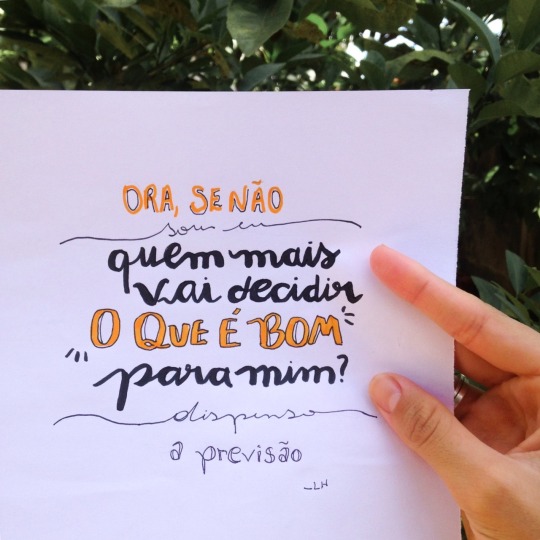 ORA, SE NÃO
sou eu
quem mais
vai decidir
O QUE É BOM
para mim?
dispenso
a previsão
-LH